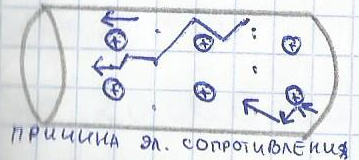 ПРИЧИНА ЭЛ. СОПРОТИВЛЕНИЯ